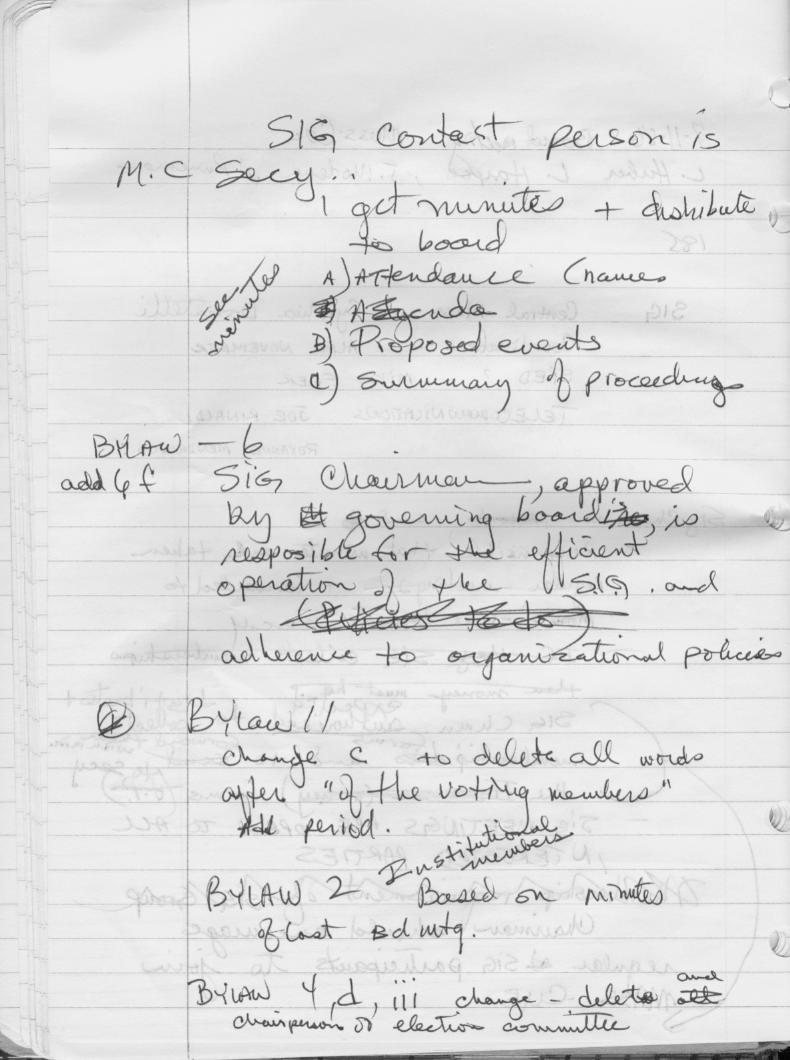 SIG Contact person is
M.C Secy..
1 get minutes + distribute
to board
see minutes
A) Attendance (names
Agenda
B) Proposed events
C) Summary of proceedings
BYLAW - 6
add 6 f SIG Chairman, approved
by governing board, is
resposible for the efficient
operation of the SIG. and
(Duties to do)
adherence to organizational policies
BYLaw 11
change C to delete all words
after "of the voting members"
period.
Institutional members
BYLAW 2 Based on minutes
of last Bd mtg.
BYLAW 4, d, iii change - delete and
chairperson of election committee